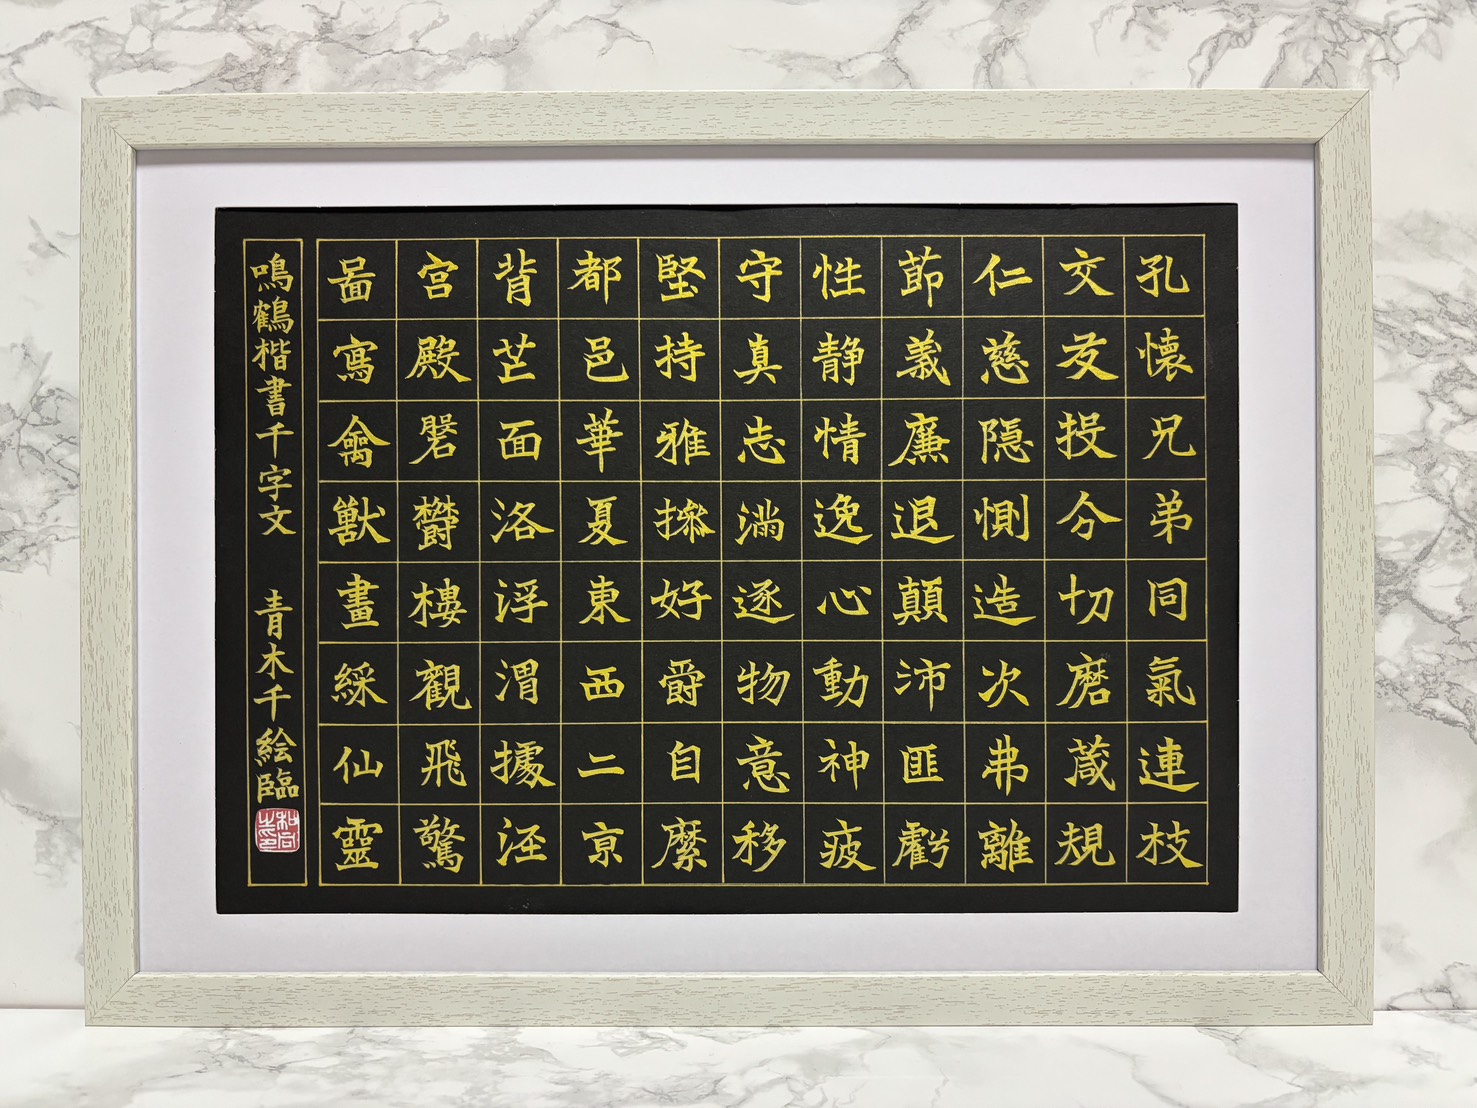 孔懷兄弟同氣連枝
交友投分切磨箴規
仁慈隱惻造次弗離
節義廉退顛沛匪虧
性静情逸心動神疲
守真志滿逐物意移
堅持雅操好爵自縻
都邑華夏東西二京
背芒面洛浮渭據涇
宮殿磐鬱樓觀飛驚
圖寫禽獸畫綵仙靈
鳴鶴楷書千字文 青木千絵臨